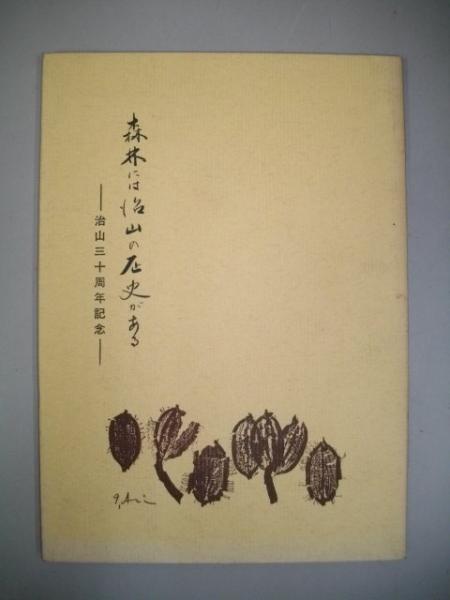 森林には治山の歴史がある
―治山三十周年記念―